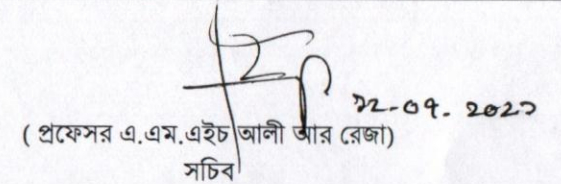 ১২-০৭. ২০২১
( প্রফেসর এ.এম.এইচ আলী আর রেজা)
সচিব